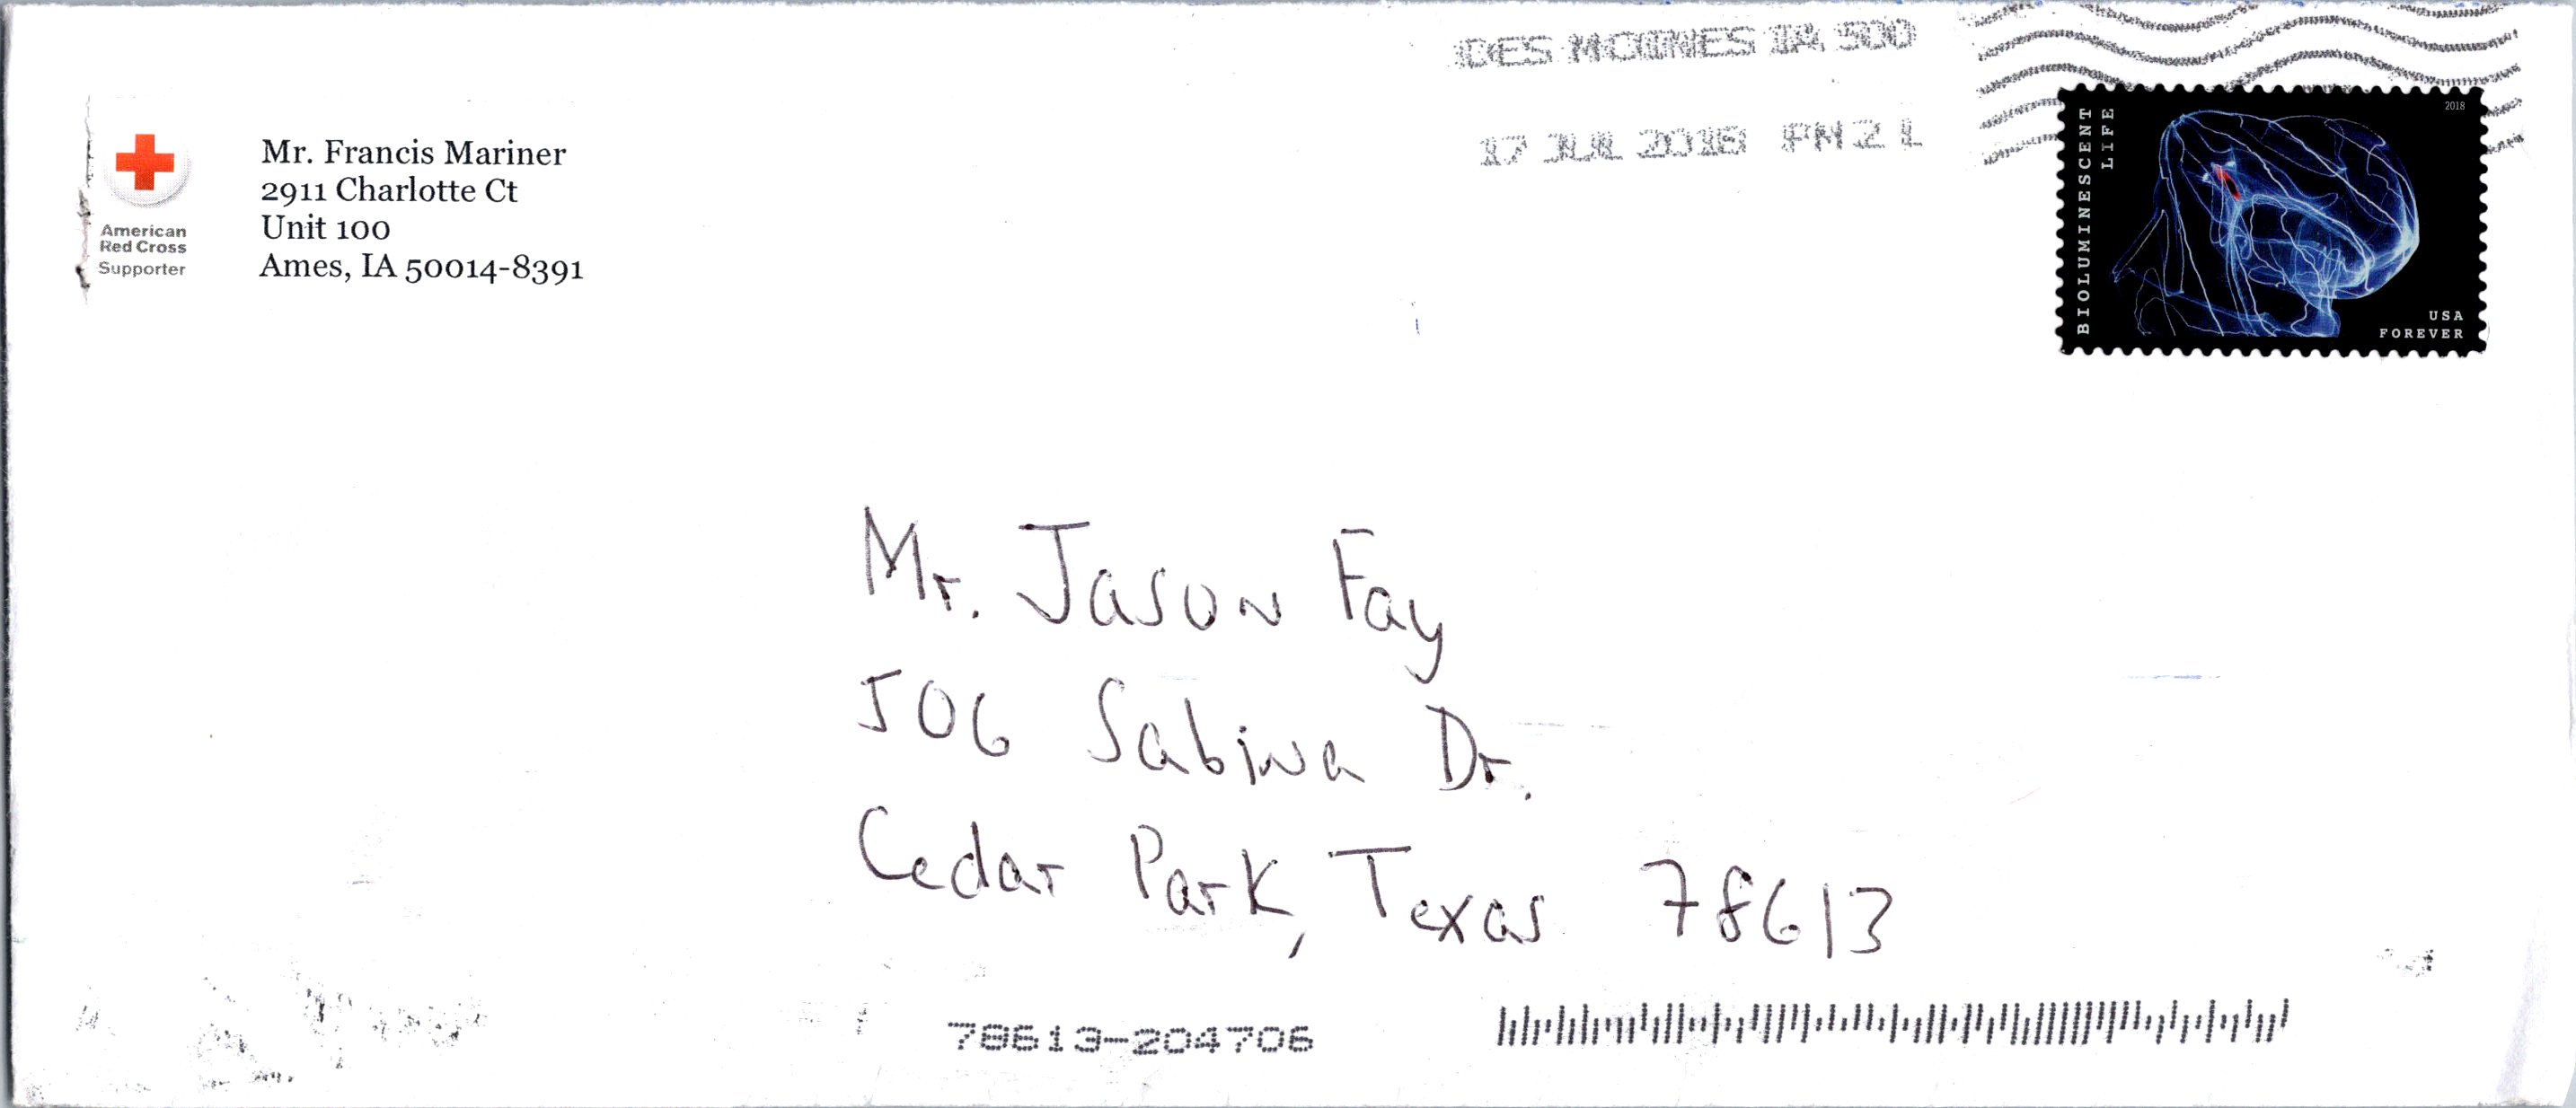 DES MOINES IA 500
17 JUL 2018 PM 2 L
BIOLUMINESCENT
LIFE
2018
USA
FOREVER
American
Red Cross
Supporter
Mr. Francis Mariner
2911 Charlotte Ct
Unit 100
Ames, IA 50014-8391
Mr. Jason Fay
506 Sabina Dr.
Cedar Park, Texas 78613
78613-204706